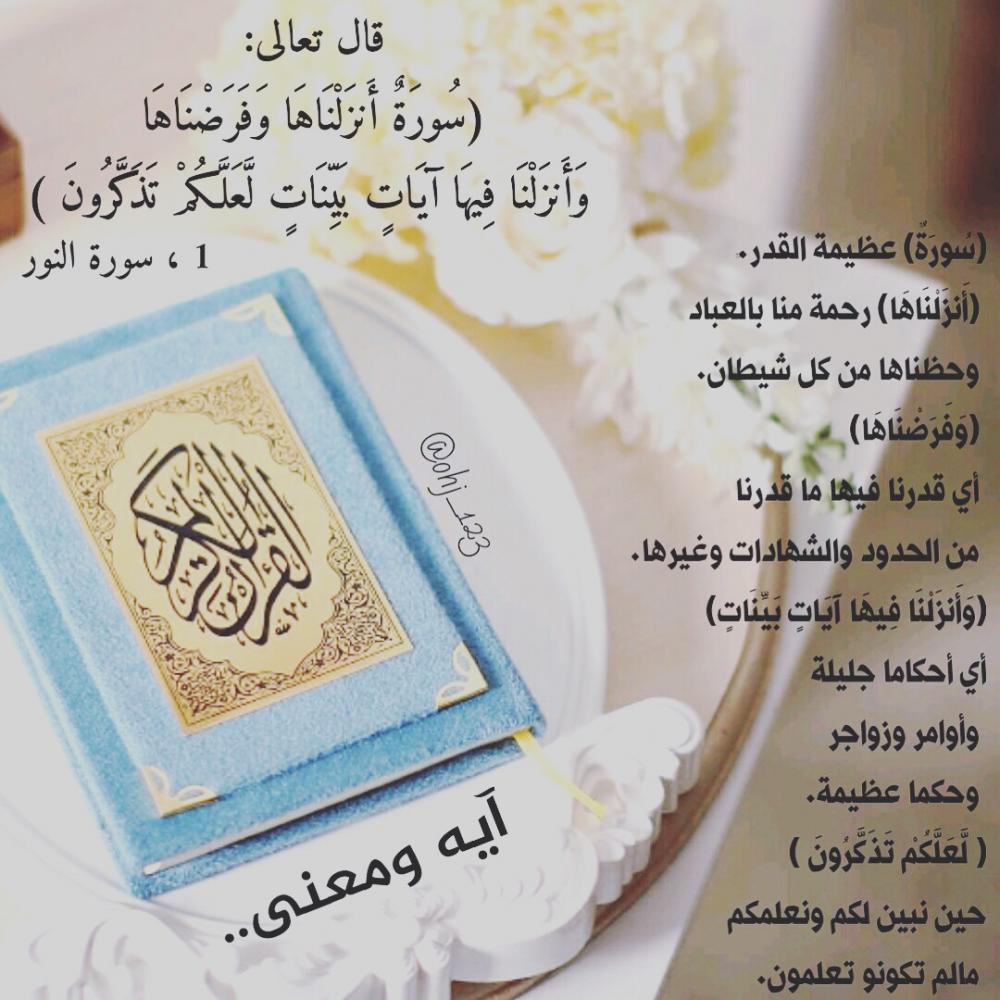 قال تعالى:
(سُورَةٌ أَنزَلْنَاهَا وَفَرَضْنَاهَا
وَأَنزَلْنَا فِيهَا آيَاتٍ بَيِّنَاتٍ لَّعَلَّكُمْ تَذَكَّرُونَ )
1 ، سورة النور
(سُورَةٌ) عظيمة القدر.
(أَنزَلْنَاهَا) رحمة منا بالعباد
وحظناها من كل شيطان.
(وَفَرَضْنَاهَا)
أي قدرنا فيها ما قدرنا
من الحدود والشهادات وغيرها.
(وَأَنزَلْنَا فِيهَا آيَاتٍ بَيِّنَاتٍ)
أي أحكاما جليلة
وأوامر وزواجر
وحكما عظيمة.
( لَّعَلَّكُمْ تَذَكَّرُونَ )
حين نبين لكم ونعلمكم
مالم تكونو تعلمون.
@ohj_123
القرآن الكريم
آيه ومعنى..